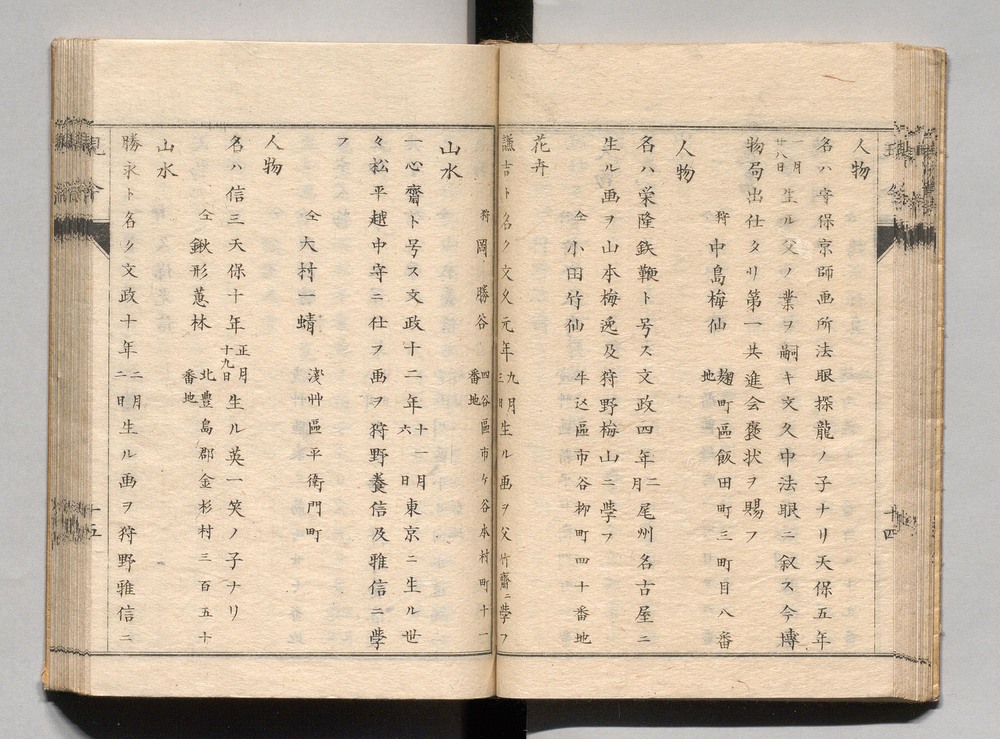 人物
名ハ守保京師画所法眼探龍ノ子ナリ天保五年
一月廿八日生ル父ノ業ヲ嗣キ文久中法眼ニ叙ス今博
物局出仕タリ第一共進会褒状ヲ賜フ
狩 中島梅仙 麹町區飯田町三町目八番地
人物
名ハ栄隆鉄鞭ト号ス文政四年二月尾州名古屋ニ
生ル画ヲ山本梅逸及狩野梅山ニ學フ
仝 小田竹仙 牛込區市谷柳町四十番地
花卉
謙吉ト名ク文久元年九月三日生ル画ヲ父竹齋ニ學フ
十四
狩 岡勝谷 四谷區市ケ谷本村町十一番地
山水
一心齋ト号ス文政十二年十一月六日東京ニ生ル世
々松平越中守ニ仕フ画ヲ狩野養信及雅信ニ學
フ
仝 大村 蜻 淺艸區平衛門町
人物
名ハ信三天保十年正月十九日生ル英一笑ノ子ナリ
仝 鍬形蕙林 北豊島郡金杉村三百五十番地
山水
勝永ト名ク文政十年二月二日生ル画ヲ狩野雅信ニ
十五